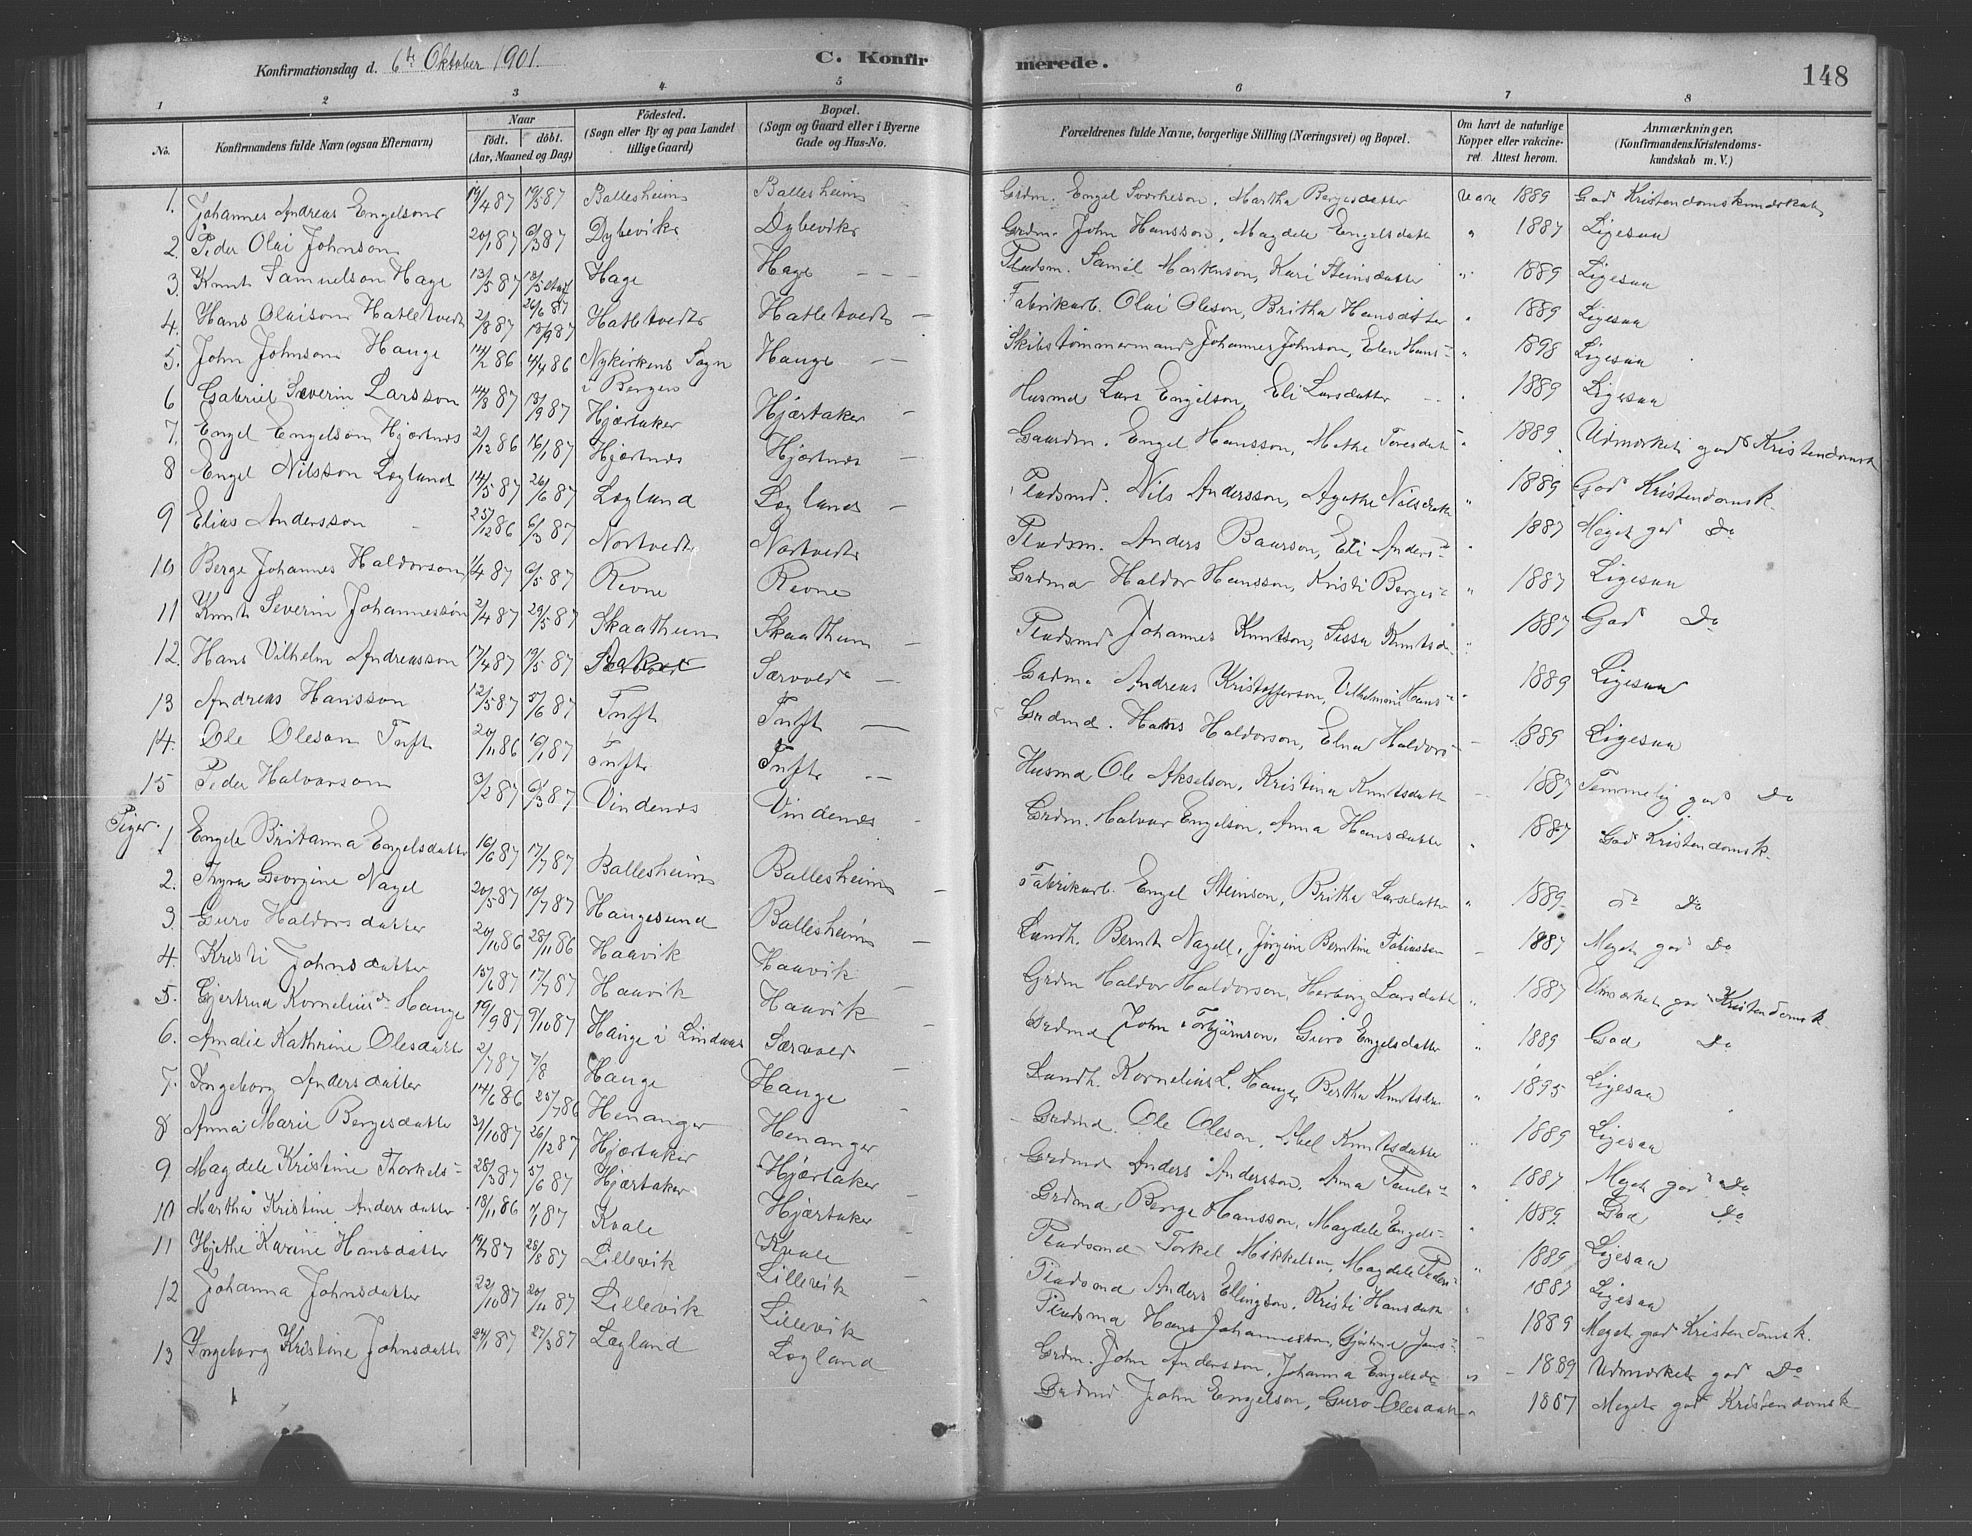 Konfirmationsdag d. 6te Oktober 1901. C. Konfirmerede. 148
1 2 3 4 5 6 7 8
No. Konfirmandens fulde Navn (ogsaa Efternavn) Naar født. døbt. (Aar, Maaned og Dag) Fødested. (Sogn eller By og paa Landet tillige Gaard) Bopæl. (Sogn og Gaard eller i Byerne Gade og Hus-No. Forældrenes fulde Navne, borgerlige Stilling (Næringsvei) og Bopæl. Om havt de naturlige Kopper eller vaccineret. Attest herom. Anmærkninger. (Konfirmandens Kristendomskundskab m. V.)
1. Johannes Andreas Engelson 19/4 87 19/5 87 Ballesheim Ballesheim Grdm. Engel Sværkeson, Martha Bergesdatter vacc 1889 God Kristendomskundskab
2. Peder Olai Johnson 20/1 87 6/3 87 Dybevik Dybevik Grdm. John Hansson, Magdele Engelsdatt " 1887 Ligesaa
3. Knut Samuelson Hage 13/5 87 18/5 26/6 87 Hage Hage Pladsm. Samél Markusson, Kari Steinsdatter " 1889 Ligesaa
4. Hans Olaison Hatletvedt 2/8 87 18/9 87 Hatletvedt Hatletvedt Fabrikarb. Olai Oleson, Britha Hansdatter " 1889 Ligesaa
5. John Johnson Hauge 14/2 86 4/4 86 Nykirkens Sogn i Bergen Hauge Skibstømmermand Johannes Johnson, Elen Hans- " 1898 Ligesaa
6 Gabriel Severin Larsson 14/8 87 13/9 87 Hjærtaker Hjærtaker Husmd Lars Engelson, Eli Larsdatter " 1889 Ligesaa
7. Engel Engelson Hjørtnes 2/12 86 16/1 87 Hjørtnes Hjørtnes Gaardm. Engel Hansson, Mette Toresdatt " 1889 Udmærket god Kristendomsk
8 Engel Nilsson Løgland 14/5 87 26/6 87 Løgland Løgland Pladsmd. Nils Andersson, Agathe Nilsdatt " 1889 God Kristendomsk.
9 Elias Andersson 25/12 86 6/3 87 Nortvedt Nortvedt Pladsm. Anders Baarson, Eli Anders- " 1887 Meget god Do
10 Berge Johannes Haldorson 1/4 87 6/5 87 Revne Revne Grdmd Haldor Hansson, Kristi Berges- " 1887 Ligesaa
11 Knut Severin Johannesson 2/4 87 29/5 87 Skaatheim Skaathun Pladsmd Johannes Knutson, Sissa Knutsd- " 1887 God Do
12. Hans Vilhelm Andreasson 17/4 87 19/5 87 Særvold Gadm. Andreas Kristofferson, Vilhelmine Hans- " 1889 Ligesaa
13 Andreas Hansson 12/5 87 5/6 87 Tuft Tuft Grdmd. Hans Haldorson, Elna Haldors- 1889 Ligesaa
14. Ole Oleson Tuft 20/11 86 16/1 87 Tuft Tuft Husmd Ole Akselson, Kristina Knutsdatt 1887 Temmelig god Do
15 Peder Halvarson 3/2 87 6/3 87 Vindenes Vindenes Grdm. Halvar Engelson, Anna Hansdatter " 1887 God Kristendomsk.
Piger.
1 Engele Britanna Engelsdatter 16/6 87 17/7 87 Ballesheim Ballesheim Fabrikarb. Engel Steinson, Britha Larsdatter " 1889 do Do
2. Thyra Georgine Nagel 20/5 87 10/7 87 Haugesund Ballesheim Landh. Bernt Nagell, Jørgine Berntine Tobiassen 1887 Meget god Do
3. Guro Haldorsdatter 20/10 86 28/11 86 Haavik Haavik Grdm Haldor Haldorson, Herborg Larsdatt " 1887 Udmærket god Kristendomsk.
4. Kristi Johnsdatter 15/6 87 17/7 87 Haavik Haavik Grdmd John Torbjørnson, Guro Engelsdatter " 1889 God Do
5. Gjertrud Kornelius Hauge 19/9 87 9/10 87 Hauge i Lindaas Særvold Landh. Kornelius L. Hauge, Bertha Knutsd " 1895 Ligesaa
6. Amalie Kathrine Olesdatter 2/7 87 7/8 Hauge Hauge Grdmd. Ole Oleson, Abel Knutsdatter " 1889 Ligesaa
7. Ingeborg Andersdatter 14/6 86 25/7 86 Henanger Henanger Grdmd Anders Andersson, Anna Pauls- " 1887 Meget god Do
8 Anna Marie Bergesdatter 31/10 87 26/12 87 Hjærtaker Hjærtaker Grdmd Berge Hansson, Magdele Engels- " 1889 God Do
9 Magdele Kristine Thorkels- 28/3 87 5/6 87 Hjærtaker Hjærtaker Pladsmd Torkel Mikkelson, Magdele Peders- " 1889 Ligesaa
10 Martha Kristine Andersdatter 18/11 86 7/1 87 Kvale Kvale Pladsmd Anders Ellingson, Kristi Hansdatt " 1887 Ligesaa
11 Hjethe Karine Hansdatter 19/7 87 28/8 87 Lillevik Lillevik Pladsmd Hans Johannesson, Gjertrud Jans- 1889 Meget god Kristendomsk.
12 Johanna Johnsdatter 22/10 87 20/11 87 Lillevik Lillevik Grdm. John Andersson, Johanna Engelsd- " 1889 Udmærket god Do
13 Ingeborg Kristine Johnsdatter 24/1 87 27/3 87 Løgland Løgland Grdmd John Engelson, Guro Olesdatt " 1887 Meget god Kristendomsk